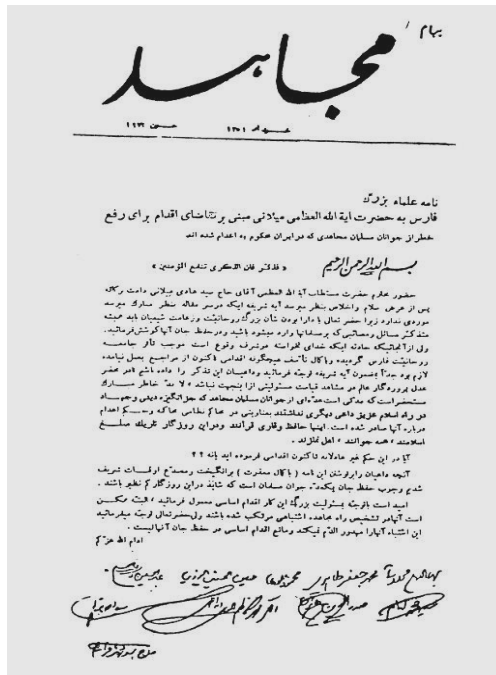 پیام
مجاهد
خرداد ۱۳۵۱
نامه علماء بزرگ
فارس به حضرت آیة الله العظمی میلانی مبنی بر تقاضای اقدام برای رفع
خطر از جوانان مسلمان مجاهدی که در ایران محکوم به اعدام شده اند
بسم الله الرحمن الرحیم
« فذکر فان الذکری تنفع المؤمنین »
حضور محترم حضرت مستطاب آیة الله العظمی آقای حاج سید هادی میلانی دامت برکاته
پس از عرض سلام و اخلاص بنظر میرسد آیه شریفه اینکه در سر مقاله بنظر مبارک میرسد
موردی ندارد زیرا حضرتعالی با دارا بودن شأن بزرگ روحانیت و زعامت شیعیان باید همیشه
متذکر مسائل و مصائبی که بر مسلمانها وارد میشود باشید و در حفظ جان آنها کوشش فرمائید.
ولی از آنجائیکه حادثه اینکه خدای نخواسته مشرف وقوع است موجب تأثر جامعه
روحانیت فارس گردیده و با کمال تأسف هیچگونه اقدامی تاکنون از مراجع بعمل نیامده
لازم بود جداً بمضمون آیه شریفه توجه فرمائید و داعیان این تذکر را داده باشم تا در محضر
عدل پروردگار عالم در مشاهد قیامت مسئولیتی از اینجهت نباشد ، لا بد خاطر مبارک
مستحضر است که مدتی است عده ای از جوانان مسلمان مجاهد که جز انگیزه دینی و جهاد
در راه اسلام عزیز داعی دیگری نداشتند بعناوینی در حاکم نظامی محاکمه و حکم اعدام
درباره آنها صادر شده است. اینها حافظ و قاری قرآنند و در این روزگار تاریک مبلغ
اسلامند ، همه جوانند ، اهل نمازند .
آیا در این حکم غیر عادلانه تاکنون اقدامی فرموده اید یا نه ؟ ؟
آنچه داعیان را بر نوشتن این نامه ( با کمال معذرت ) برانگیخت و مصدع اوقات شریف
شدیم وجوب حفظ جان یکعده جوان مسلمان است که شاید در این روزگار کم نظیر باشند .
امید است با توجه بمسئولیت بزرگ این کار اقدام اساسی معمول فرمائید ، البته ممکن
است آنها در تشخیص راه مجاهده اشتباهی مرتکب شده باشند ولی حضرتعالی توجه میفرمائید
این اشتباه آنها را مهدور الدم نمیکند و مانع اقدام اساسی در حفظ جان آنها نیست .
ادام الله عزکم